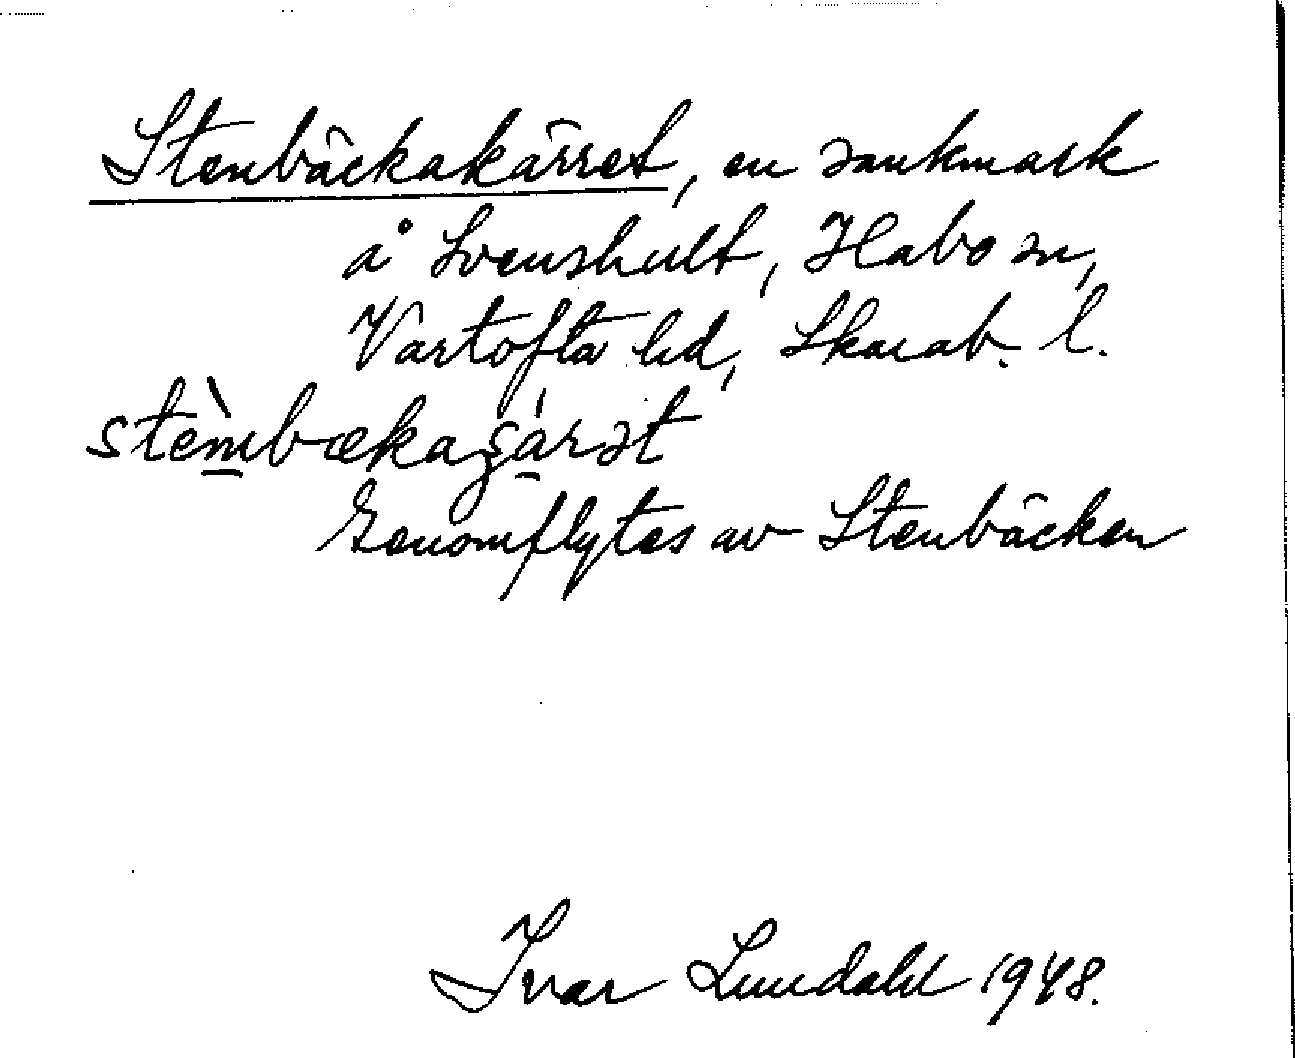 Stenbäckakärret, en sankmark
å Svenshult, Habo sn,
Vartofta hd, Skarab. l.
stèmbækaɕárət
Genomflytes av Stenbäcken
Ivar Lundahl 1948.